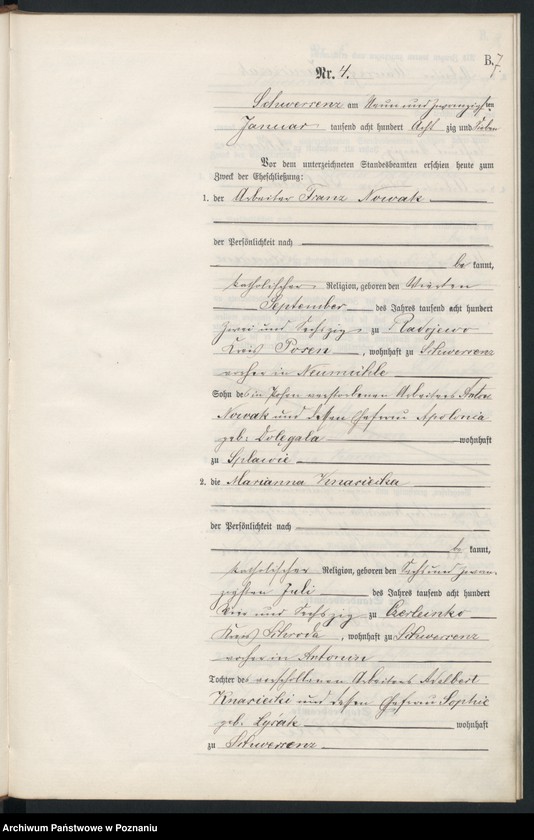 B. 7.
Nr. 4.
Schwersenz am Neun und zwanzigsten
Januar tausend acht hundert Acht zig und Sieben
Vor dem unterzeichneten Standesbeamten erschien heute zum
Zweck der Eheschließung:
1. der Arbeiter Franz Nowak
der Persönlichkeit nach
be kannt,
katholischer Religion, geboren den Vierten
September des Jahres tausend acht hundert
zwei und Sechszig zu Radojewo
Kreis Posen, wohnhaft zu Schwersenz
vorher in Neumühle
Sohn des in Posen verstorbenen Arbeiters Anton
Nowak und dessen Ehefrau Apolonia
geb. Dolęgala wohnhaft
zu Splawie
2. die Marianna Knasiecka
der Persönlichkeit nach
be kannt,
katholischer Religion, geboren den Sechs und zwan-
zigsten Juli des Jahres tausend acht hundert
und Sechszig zu Czerlenko
Kreis Schroda, wohnhaft zu Schwersenz
vorher in
Tochter des verschollenen Arbeiters Adelbert
Knasiecki und dessen Ehefrau Sophie
geb. wohnhaft
zu Schwersenz
Archiwum Państwowe w Poznaniu